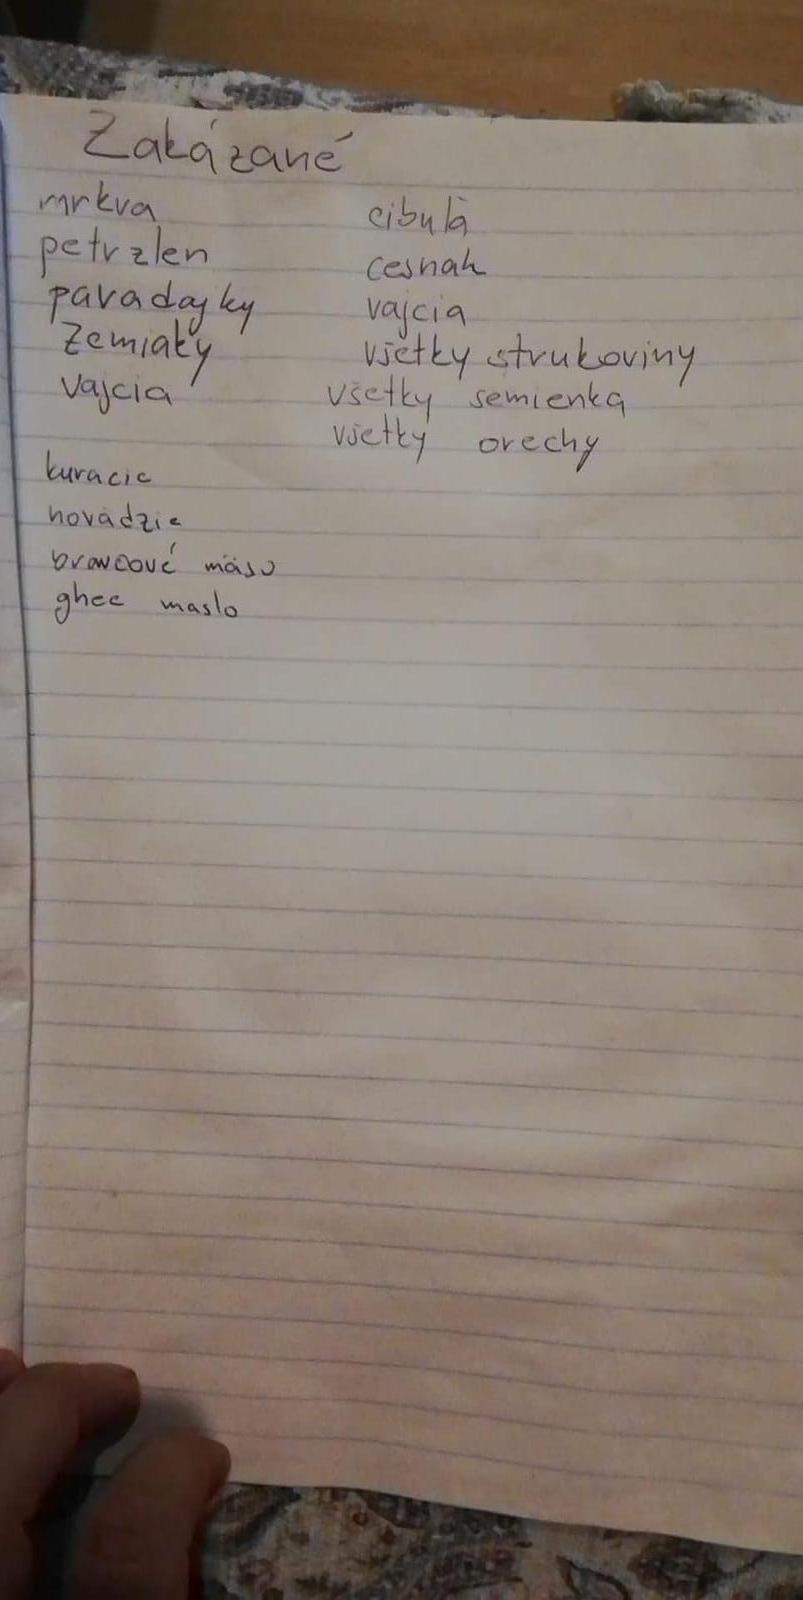 Zakázané
mrkva
petrzlen
paradajky
Zemiaky
Vajcia
kuracie
hovädzie
bravčové mäso
ghee maslo
cibula
cesnak
vajcia
všetky strukoviny
všetky semienka
všetky orechy